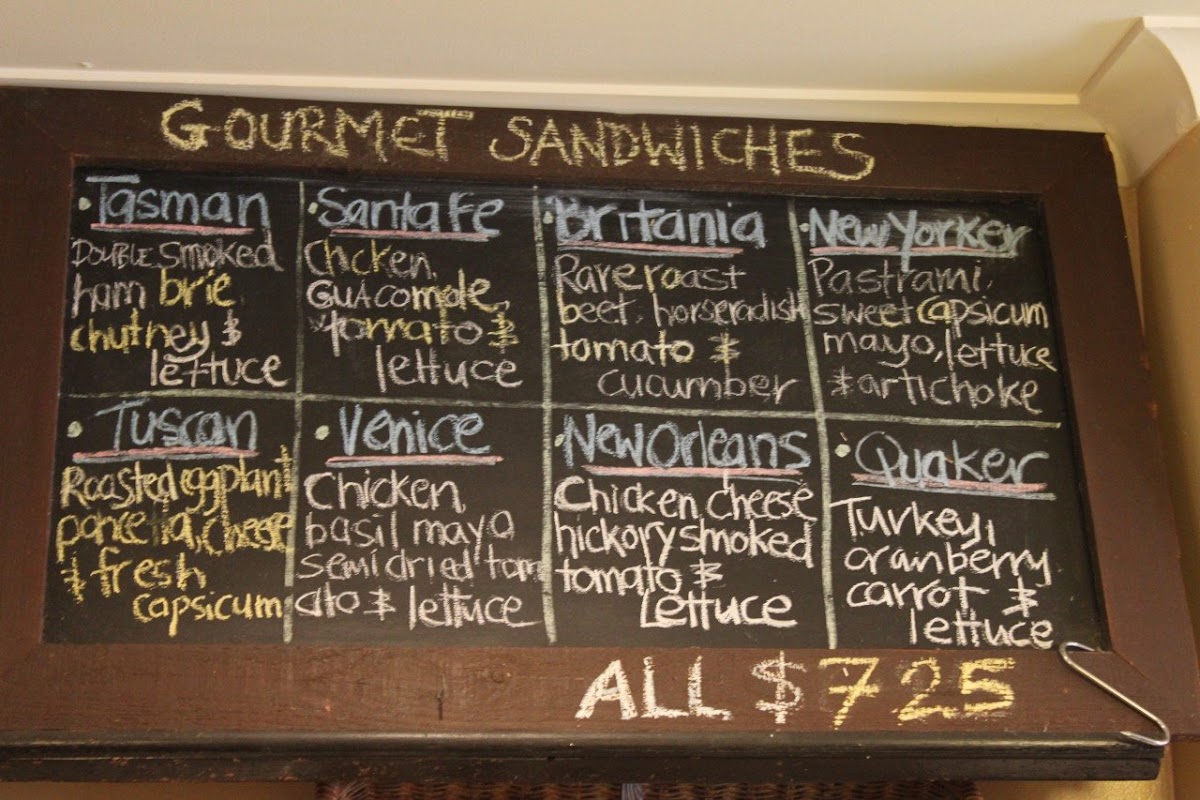 GOURMET SANDWICHES
• Tasman
DOUBLE Smoked
ham brie
chutney &
lettuce
• Santa Fe
Chcken,
GUACOmole,
tomato &
lettuce
• Britania
Rare roast
beef, horseradish
tomato &
cucumber
• New Yorker
Pastrami,
sweet capsicum
mayo, lettuce
& artichoke
• Tuscan
Roasted eggplant
cheese
& fresh
capsicum
• Venice
Chicken,
basil mayo
semi dried tom
ato & lettuce
• New Orleans
Chicken, cheese
hickory smoked
tomato &
Lettuce
• Quaker
Turkey,
cranberry
carrot &
lettuce
ALL $725